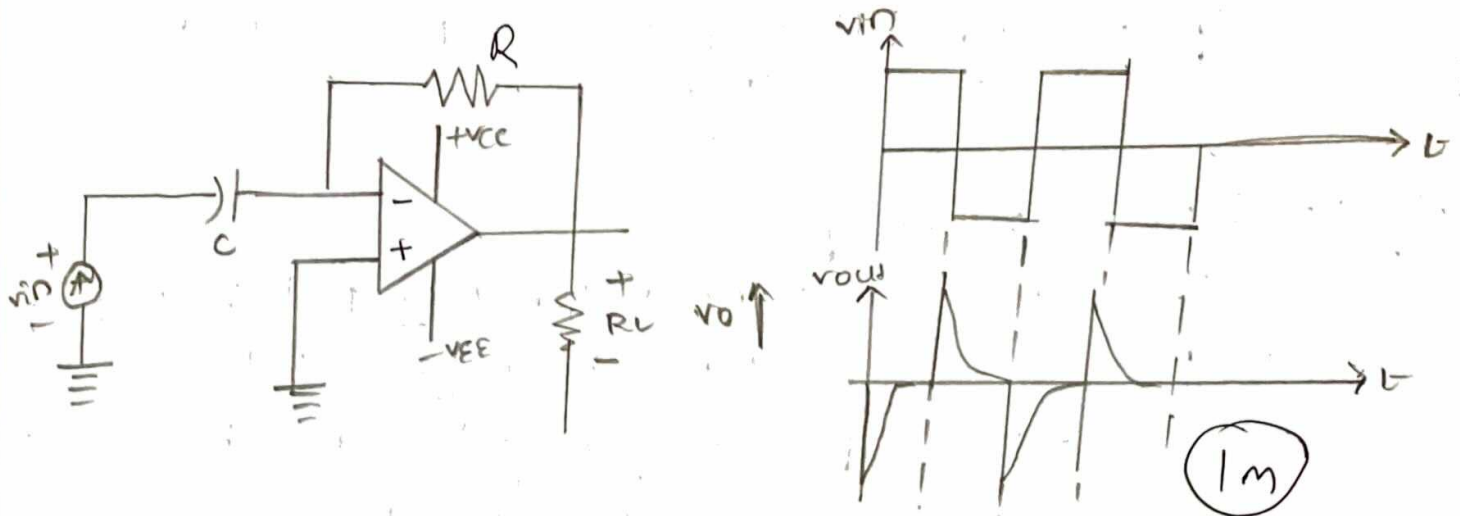 R
+VCC
-
+
C
+
vin
-
-VEE
+
RL
-
vo
vin
t
vout
t
1m